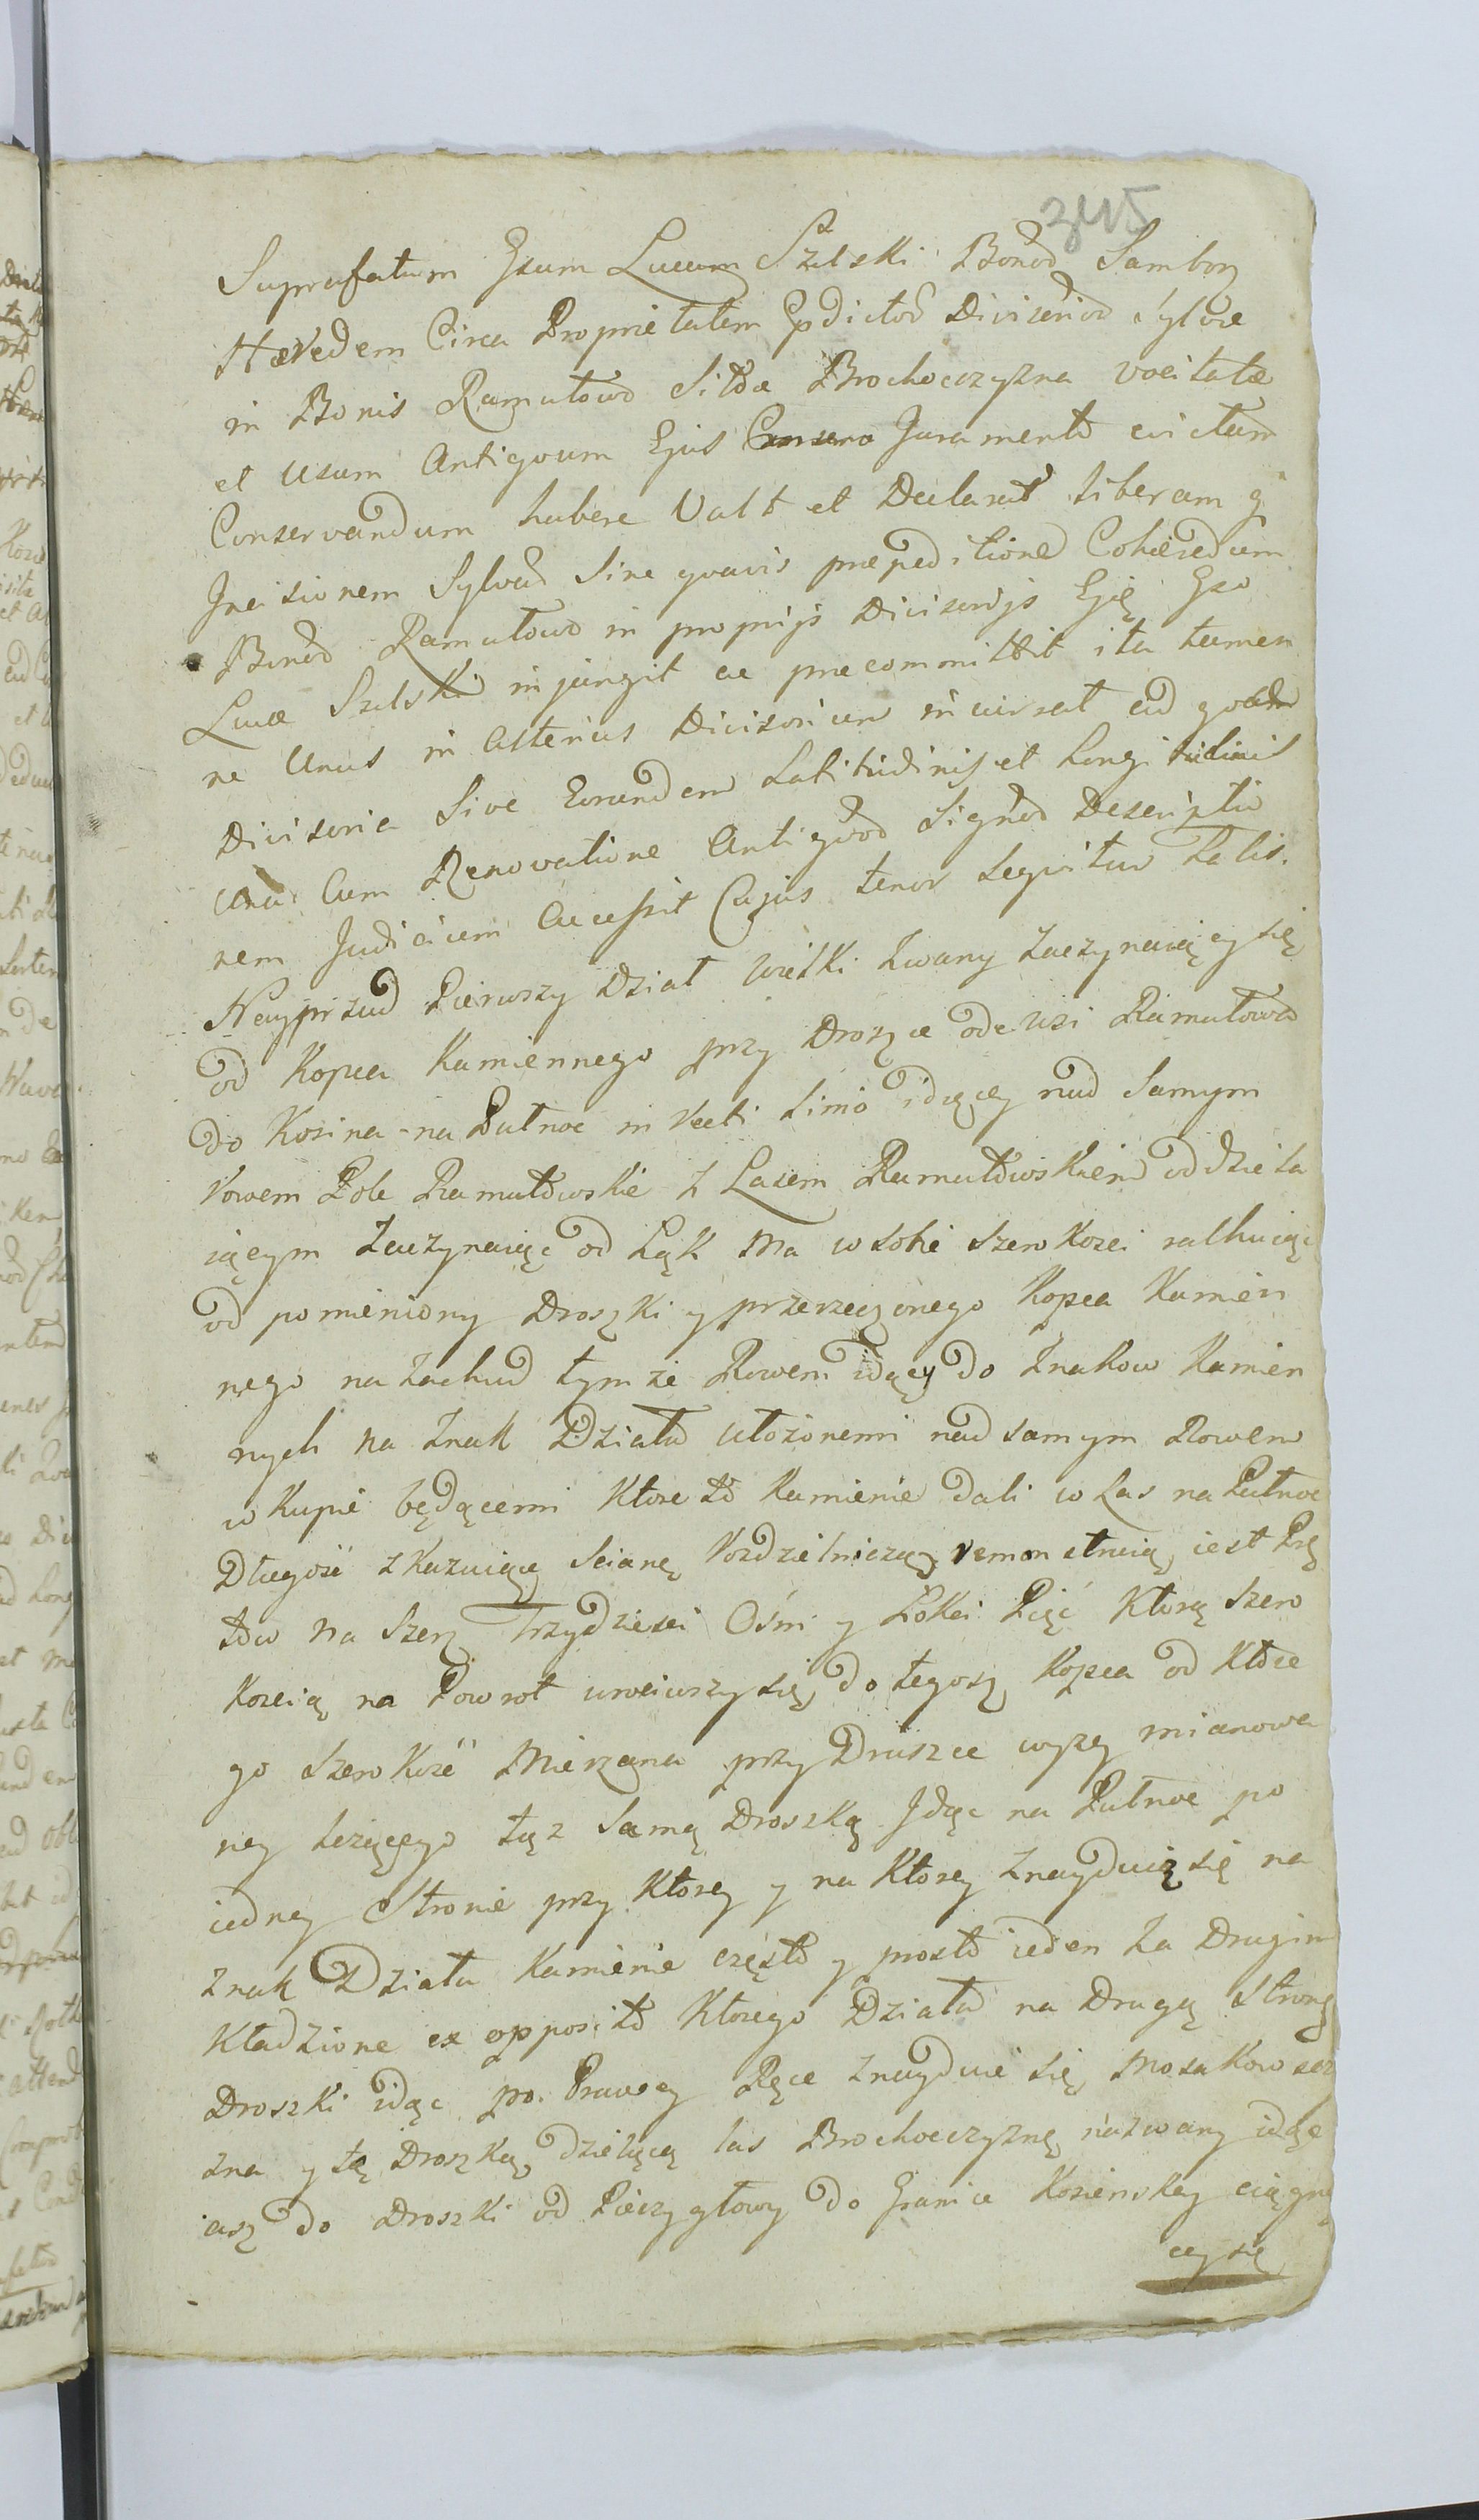 Suprafatum Gsum Lucam Szelski Bonoꝝ Sambory
Hæredem Circa Proprietatem Ipsdictoꝝ Divisorioꝝ Sylvæ
in Bonis Ramutowo Sittæ Brochoczyzna vocitatæ
et Usum Antiquum Ejus Juramento evictum
Conservandum habere Valt et Declarat liberam q
Incisionem Sylvaꝝ Sine quavis præpeditione Cohæredum
Bonoꝝ Ramutowo in proprijs Divisorijs Gso
Lucæ Szelski injungit ac præcommittit ita tamen
ne Unus in Alterius Divisorium incurrat ad quæ
Divisoria Sive Eorundem Latitudinis et Longitudinis
Una Cum Renovatione Antiquoꝝ Signoꝝ Descriptio
nem Judicium Accessit Cujus tenor Sequitur Talis.
Nayprzud Pierwszy Dział Wielki Zwany Zaczynaiący się
od Kopca Kamiennego przy Drozce ode Wsi Ramutowa
do Kosina na Pułnoc in recti Linio idącey nad Samym
rowem Pole Ramutowskie z Lasem Ramutowskiem oddziela
iącym Zaczynaiąc od Łąk Ma w sobie Szerokosci rachuiąc
od pomieniony Droszki y przerzeczonego Kopca Kamien
nego na Zachud tymże Rowem idący do Znakow Kamien
nych na Znak Działu ułożonemi nad samym Rowem
w Kupie będącemi Ktore to Kamienie dali w Las na Pułnoc
Długość zkazuiące Scianę Rozdzielniczą remonstruią iest Prę
tow na Szerz Trzydziesci Ośm y Łokci Pięć Ktorą Szero
koscią na Powrot wrociwszy się do tegosz Kopca od Ktore
go Szerokość Mierzana przy Druszce wyzey mianowa
ney lezącego tąz Samą Droszką Idąc na Pułnoc po
iedney Stronie przy Ktorey y na Ktorey Znayduią się na
Znak Działu Kamienie często y prosto ieden Za Drugim
Kładzione ex opposito Ktorego Działu na Drugą Stronę
Droszki idąc po Prawey Ręce Znayduie się Mosakowscz
zna y tą Droszką dzielącą las Brochoczyznę nazwany idąc
asz do Droszki od Pieczygłowy do Granice Kosienskey ciągną
cey się